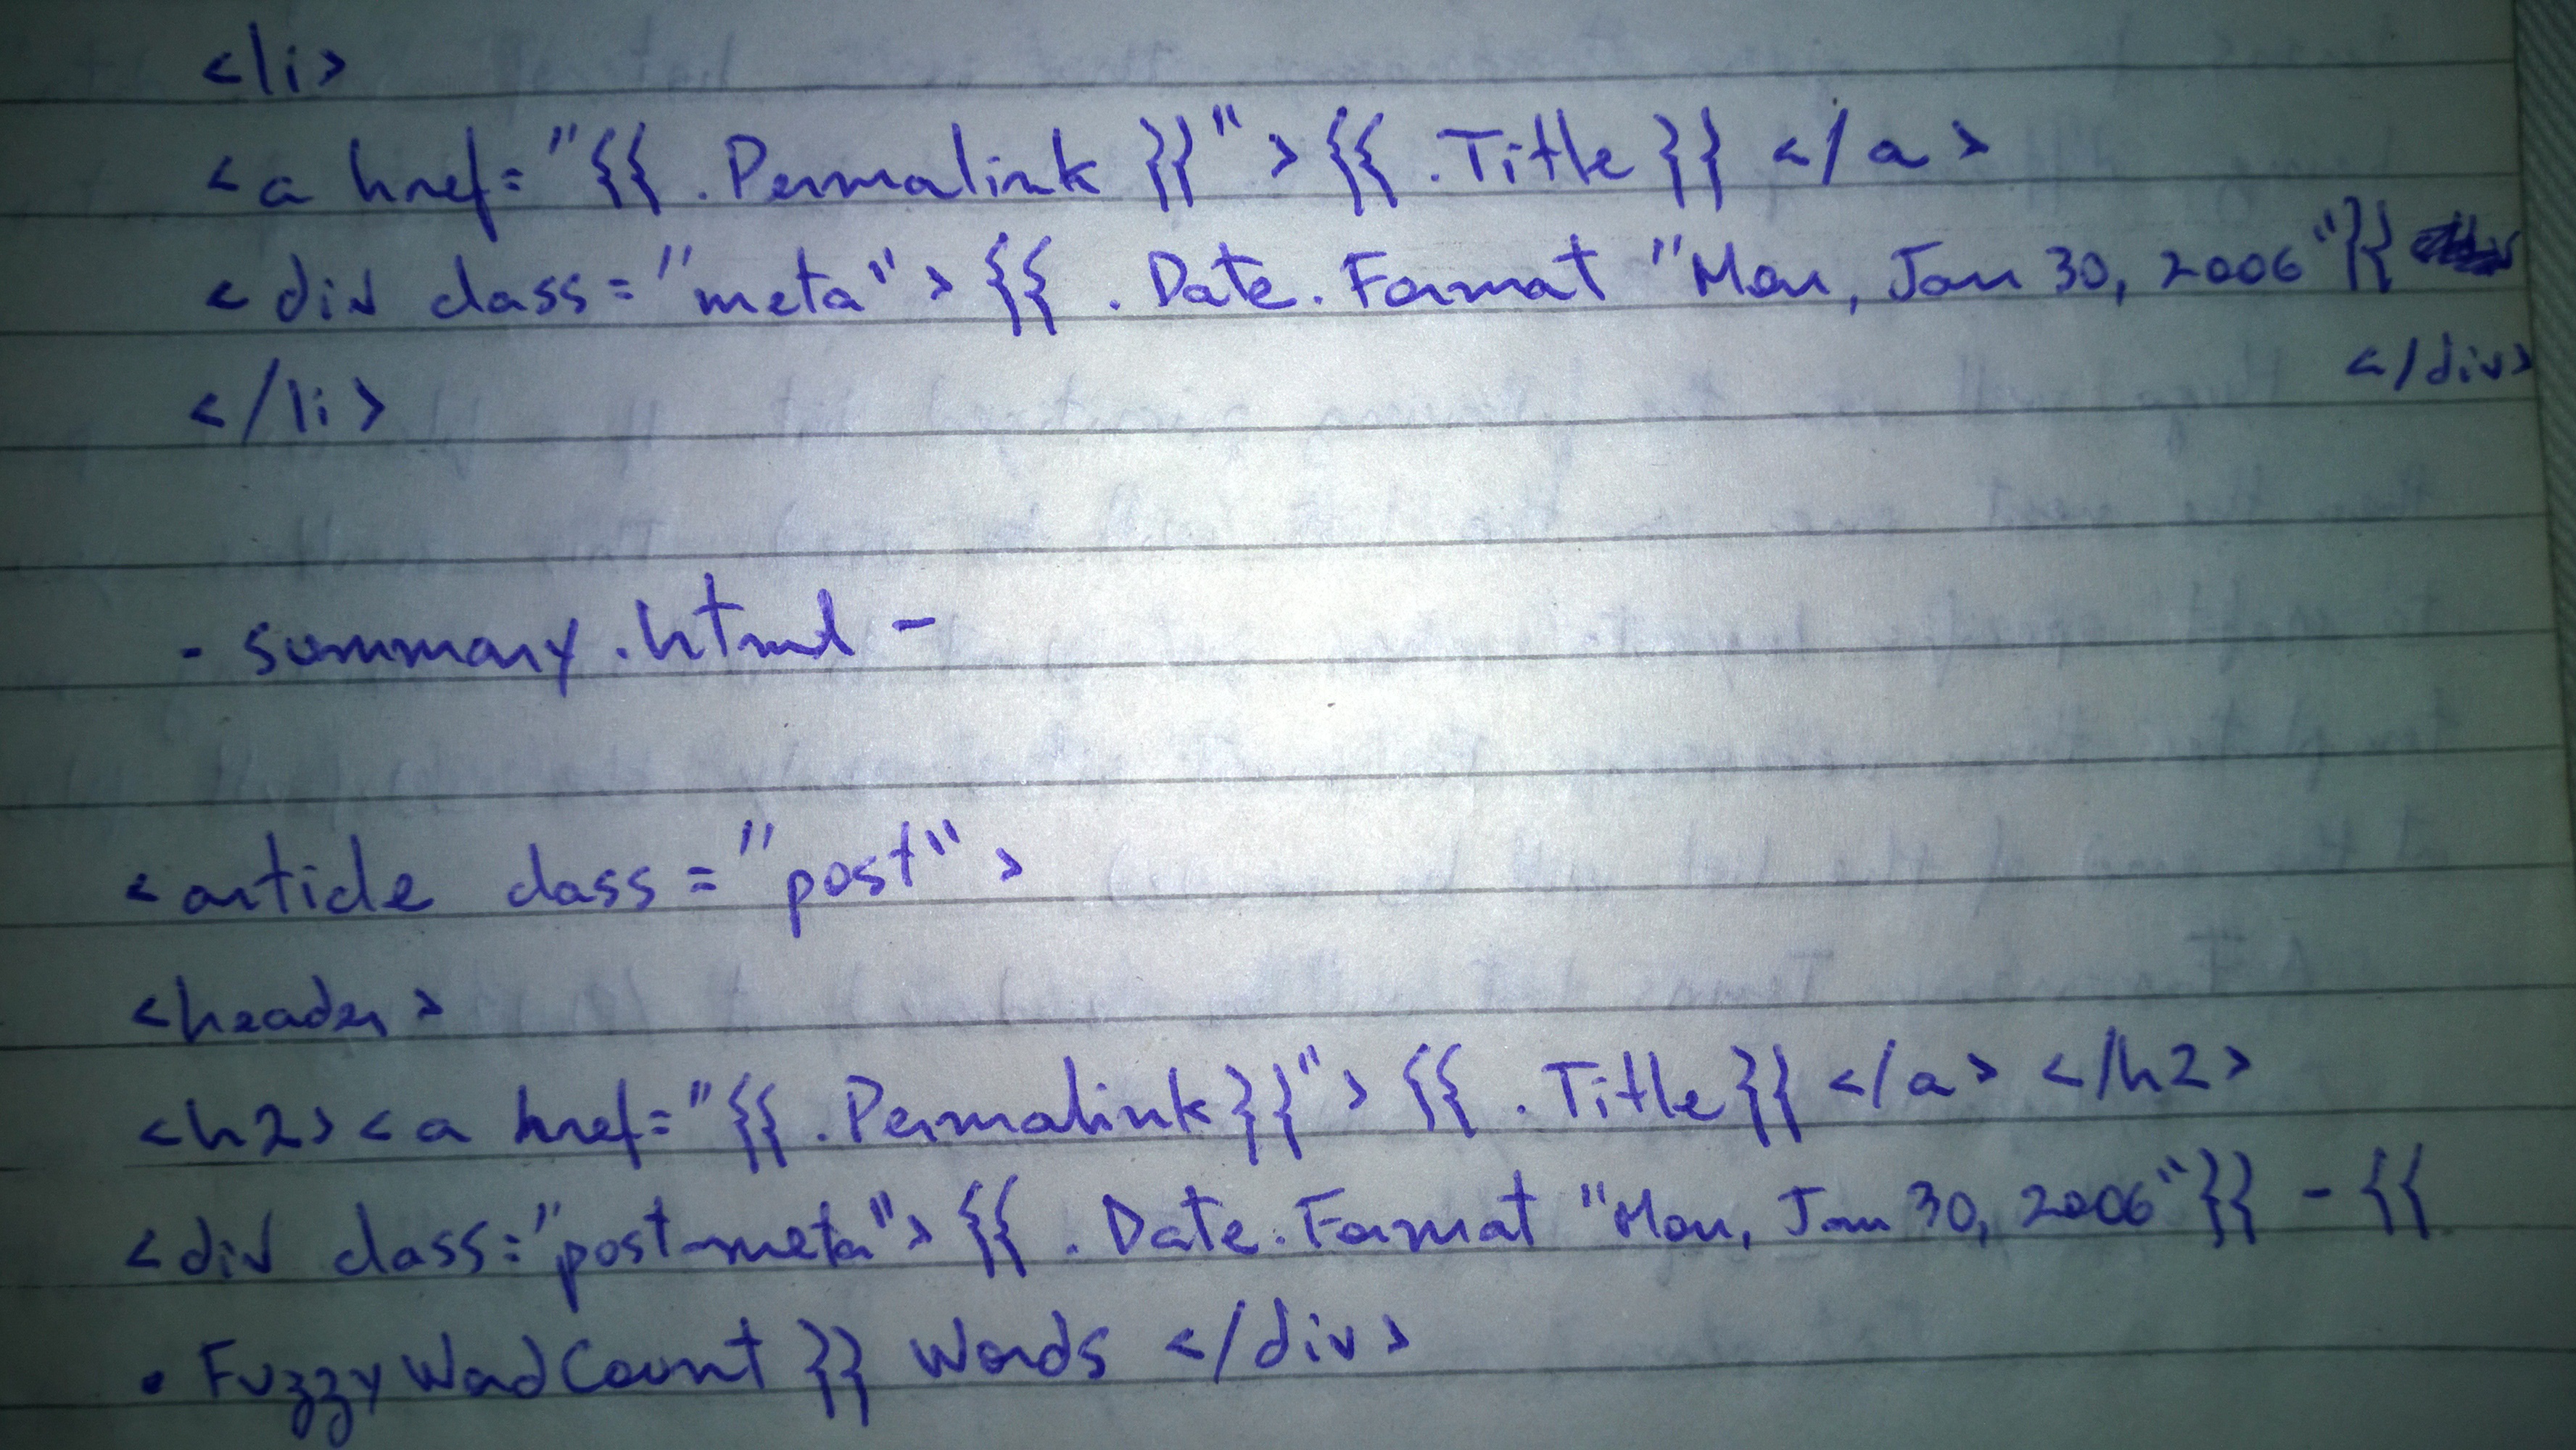 <li>
<a href="{{ .Permalink }}">{{ .Title }} </a>
<div class="meta">{{ .Date.Format "Mon, Jan 30, 2006"}}
</div>
</li>
- summary.html -
<article class="post">
<header>
<h2><a href="{{ .Permalink}}">{{ .Title}} </a></h2>
<div class="post-meta">{{ .Date.Format "Mon, Jan 30, 2006"}} - {{
.FuzzyWordCount }} Words </div>